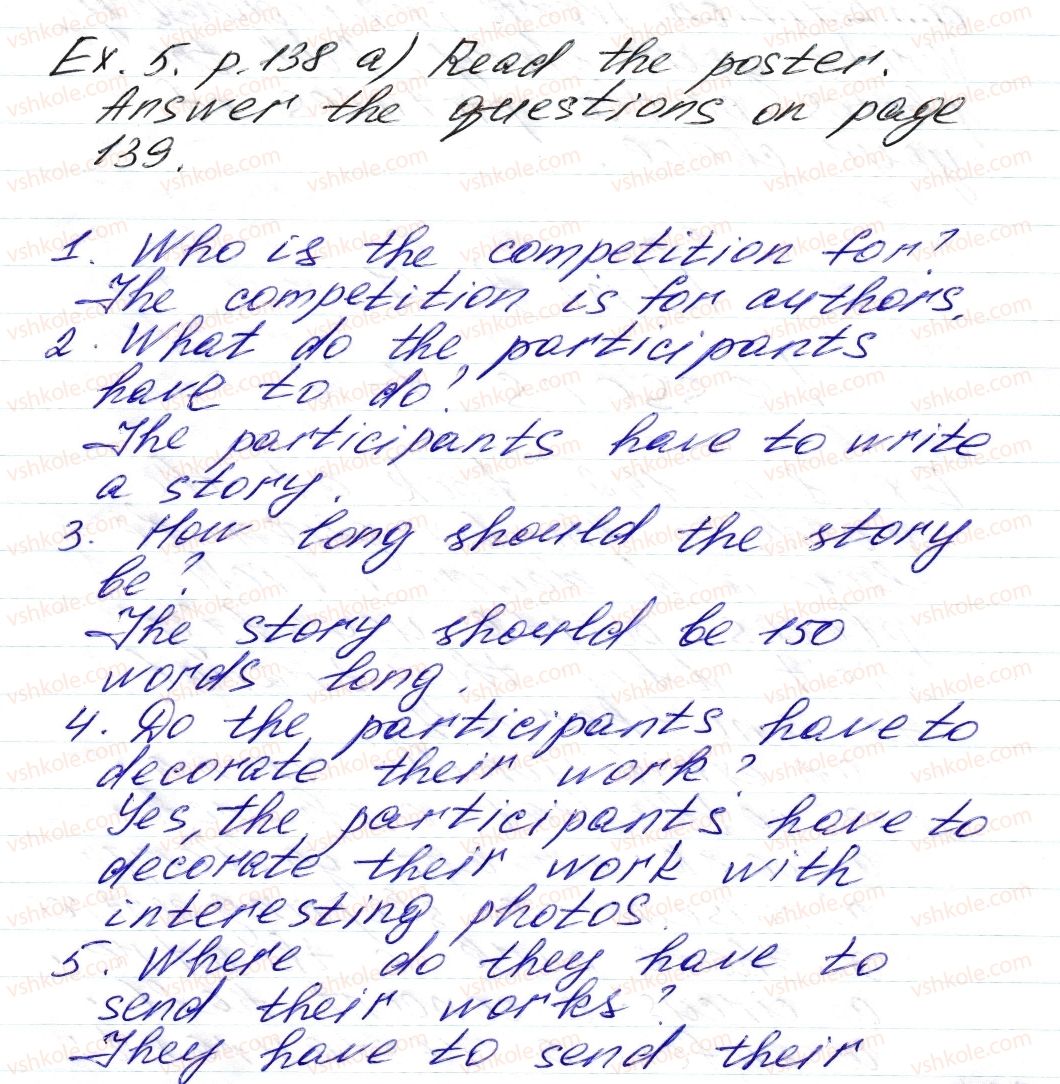 Ex. 5. p. 138 a) Read the poster.
Answer the questions on page
139.
1. Who is the competition for?
The competition is for authors.
2. What do the participants
have to do?
The participants have to write
a story.
3. How long should the story
be?
The story should be 150
words long.
4. Do the participants have to
decorate their work?
Yes, the participants have to
decorate their work with
interesting photos.
5. Where do they have to
send their works?
They have to send their